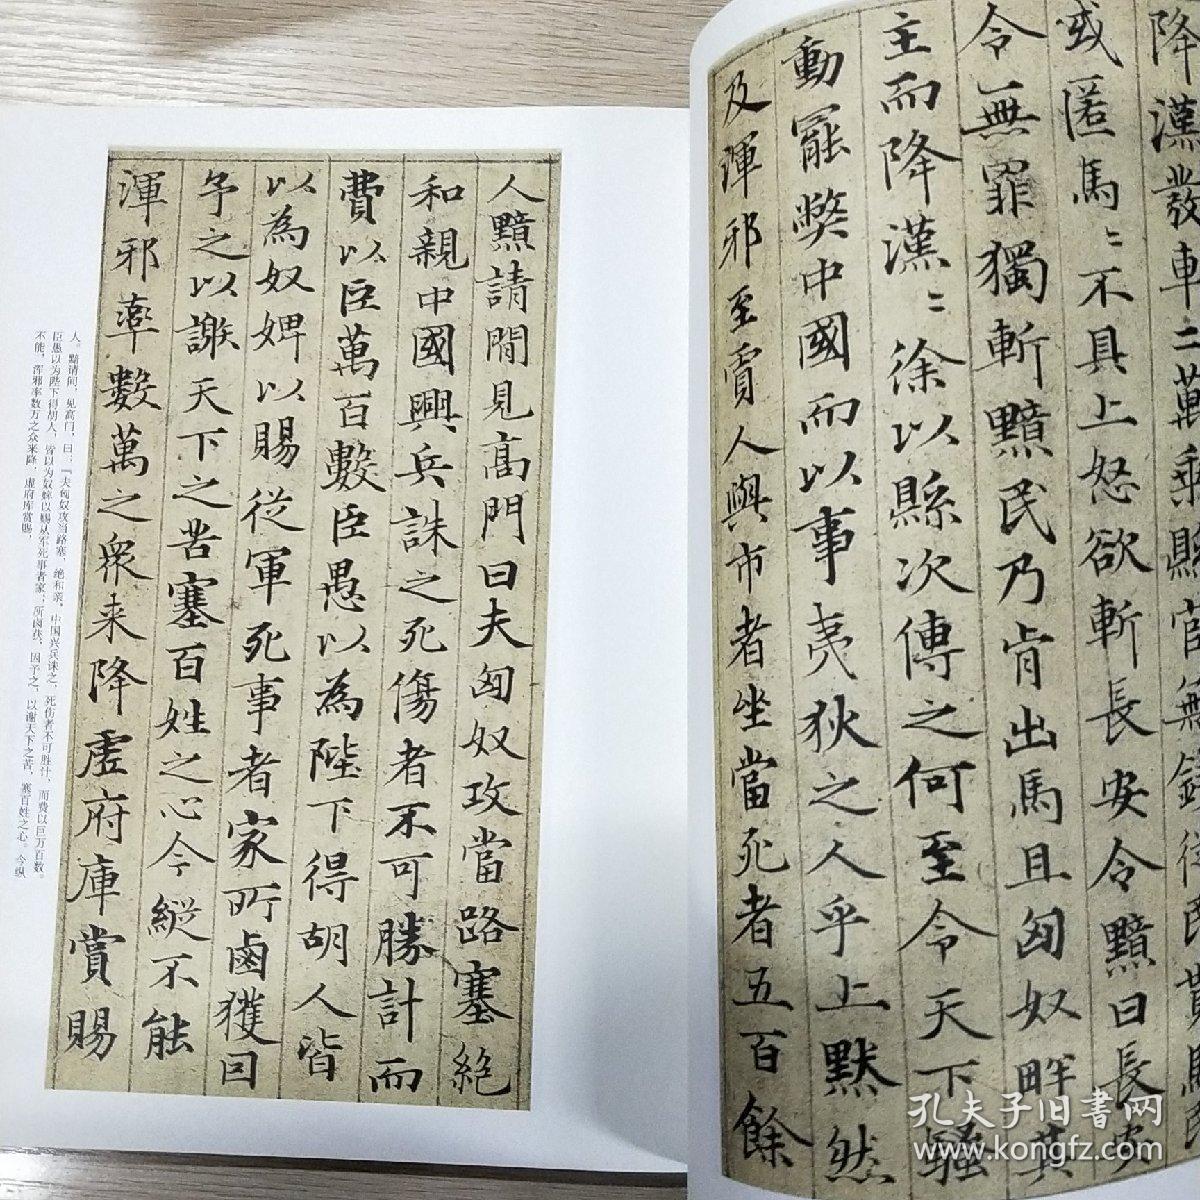 降漢發車二萬乘縣官無錢從民貰馬民
或匿馬〻不具上怒欲斬長安令黯曰長安
令無罪獨斬黯民乃肯出馬且匈奴畔其
主而降漢〻徐以縣次傳之何至令天下騷
動罷獘中國而以事夷狄之人乎上默然
及渾邪至賈人與市者坐當死者五百餘
人黯請閒見高門曰夫匈奴攻當路塞絕
和親中國興兵誅之死傷者不可勝計而
費以臣萬百數臣愚以為陛下得胡人皆
以為奴婢以賜從軍死事者家所鹵獲因
予之以謝天下之苦塞百姓之心今縱不能
渾邪率數萬之眾来降虛府庫賞賜
人。黯请间，见高门，曰：『夫匈奴攻当路塞，绝和亲，中国兴兵诛之，死伤者不可胜计，而费以巨万百数。
臣愚以为陛下得胡人，皆以为奴婢以赐从军死事者家；所卤获，因予之，以谢天下之苦，塞百姓之心。今纵
不能，浑邪率数万之众来降，虚府库赏赐，
孔夫子旧书网
www.kongfz.com